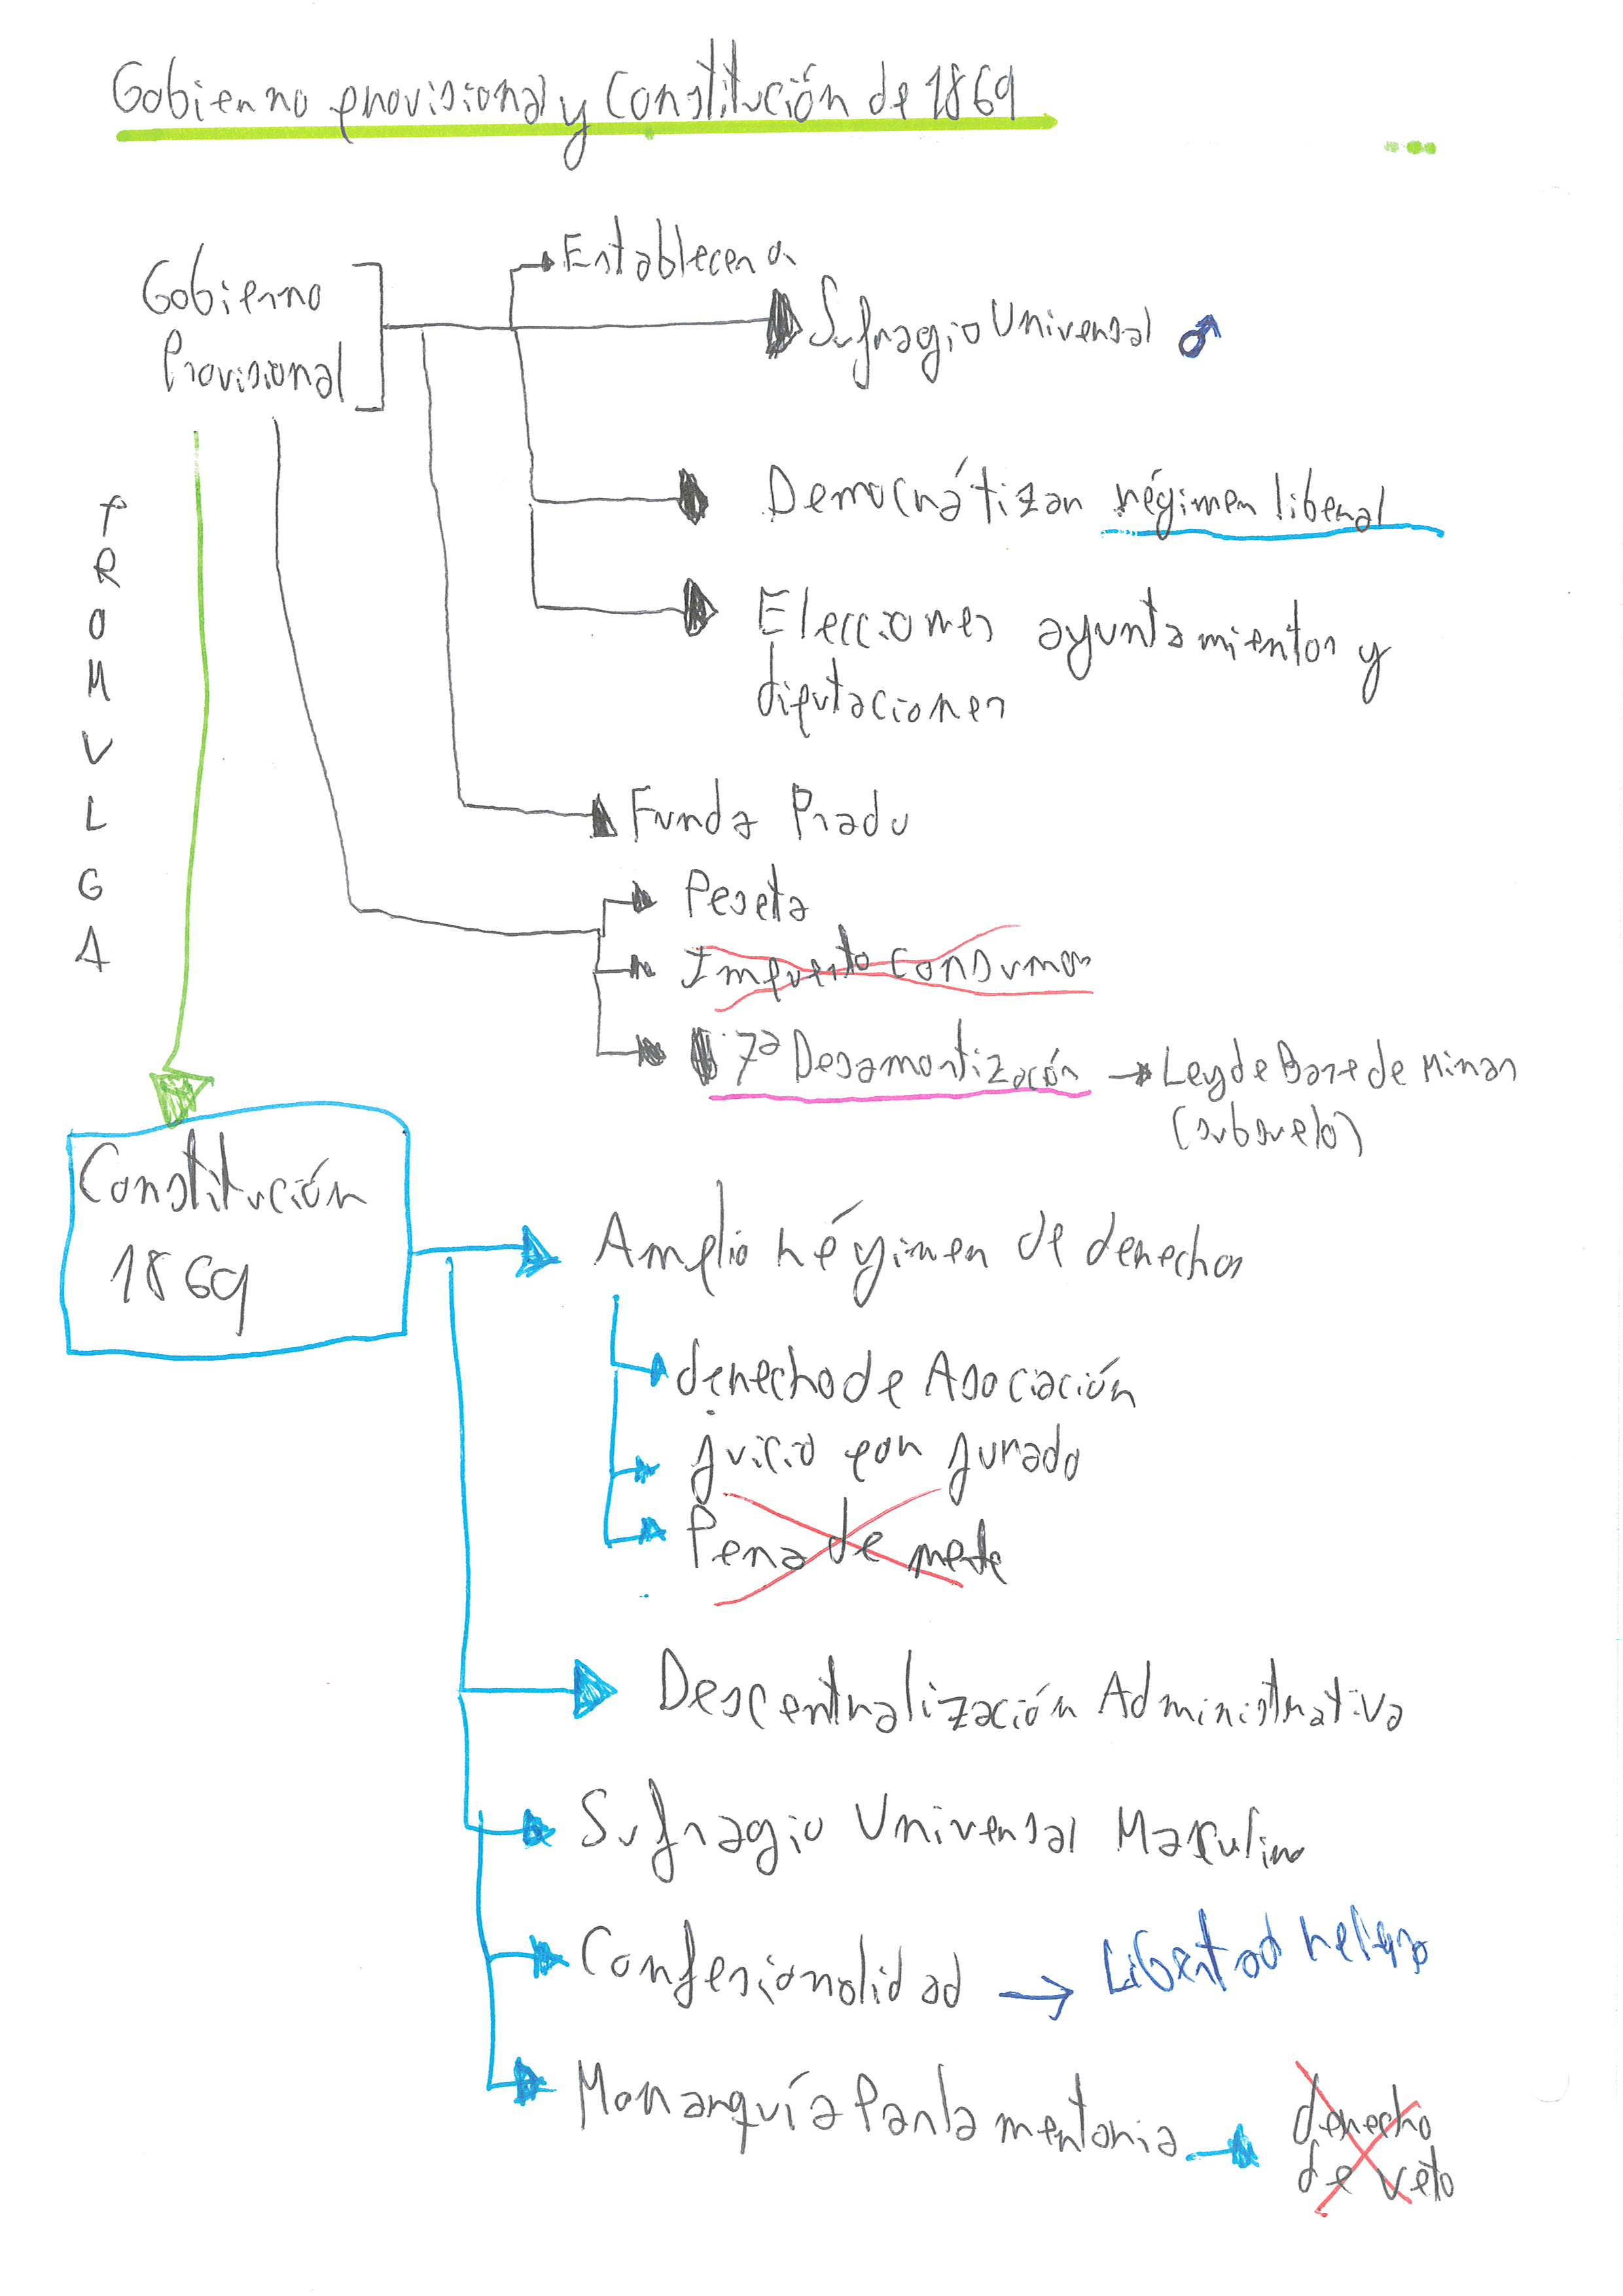 Gobierno provisional y Constitución de 1869
Establecen a
Gobierno
Provisional
Sufragio Universal ♂
Democrátizan régimen liberal
Elecciones ayuntamientos y
diputaciones
PROMULGA
Funda Prado
Peseta
Impuesto Consumos
7ª Desamortización → Ley de Base de Minas
(subsuelo)
Constitución
1869
Amplio régimen de derechos
derecho de Asociación
juicio por jurado
Pena de
Descentralización Administrativa
Sufragio Universal Masculino
Confesionalidad → Libertad
Monarquía Parlamentaria → derecho
de veto